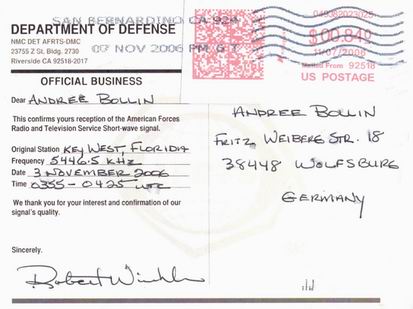 SAN BERNARDINO CA 924
07 NOV 2006 PM 6 T
049J82023025
$00.840
11/07/2006
Mailed From 92518
US POSTAGE
DEPARTMENT OF DEFENSE
NMC DET AFRTS-DMC
23755 Z St. Bldg. 2730
Riverside CA 92518-2017
OFFICIAL BUSINESS
Dear ANDREE BOLLIN
This confirms yours reception of the American Forces
Radio and Television Service Short-wave signal.
Original Station KEY WEST, FLORIDIA
Frequency 5446.5 KHz
Date 3 NOVEMBER 2006
Time 0355-0425 UTC
We thank you for your interest and confirmation of our
signal's quality.
Sincerely.
Robert Winkler
ANDREE BOLLIN
FRITZ WEIBERG STR. 18
38448 WOLFSBURG
GERMANY